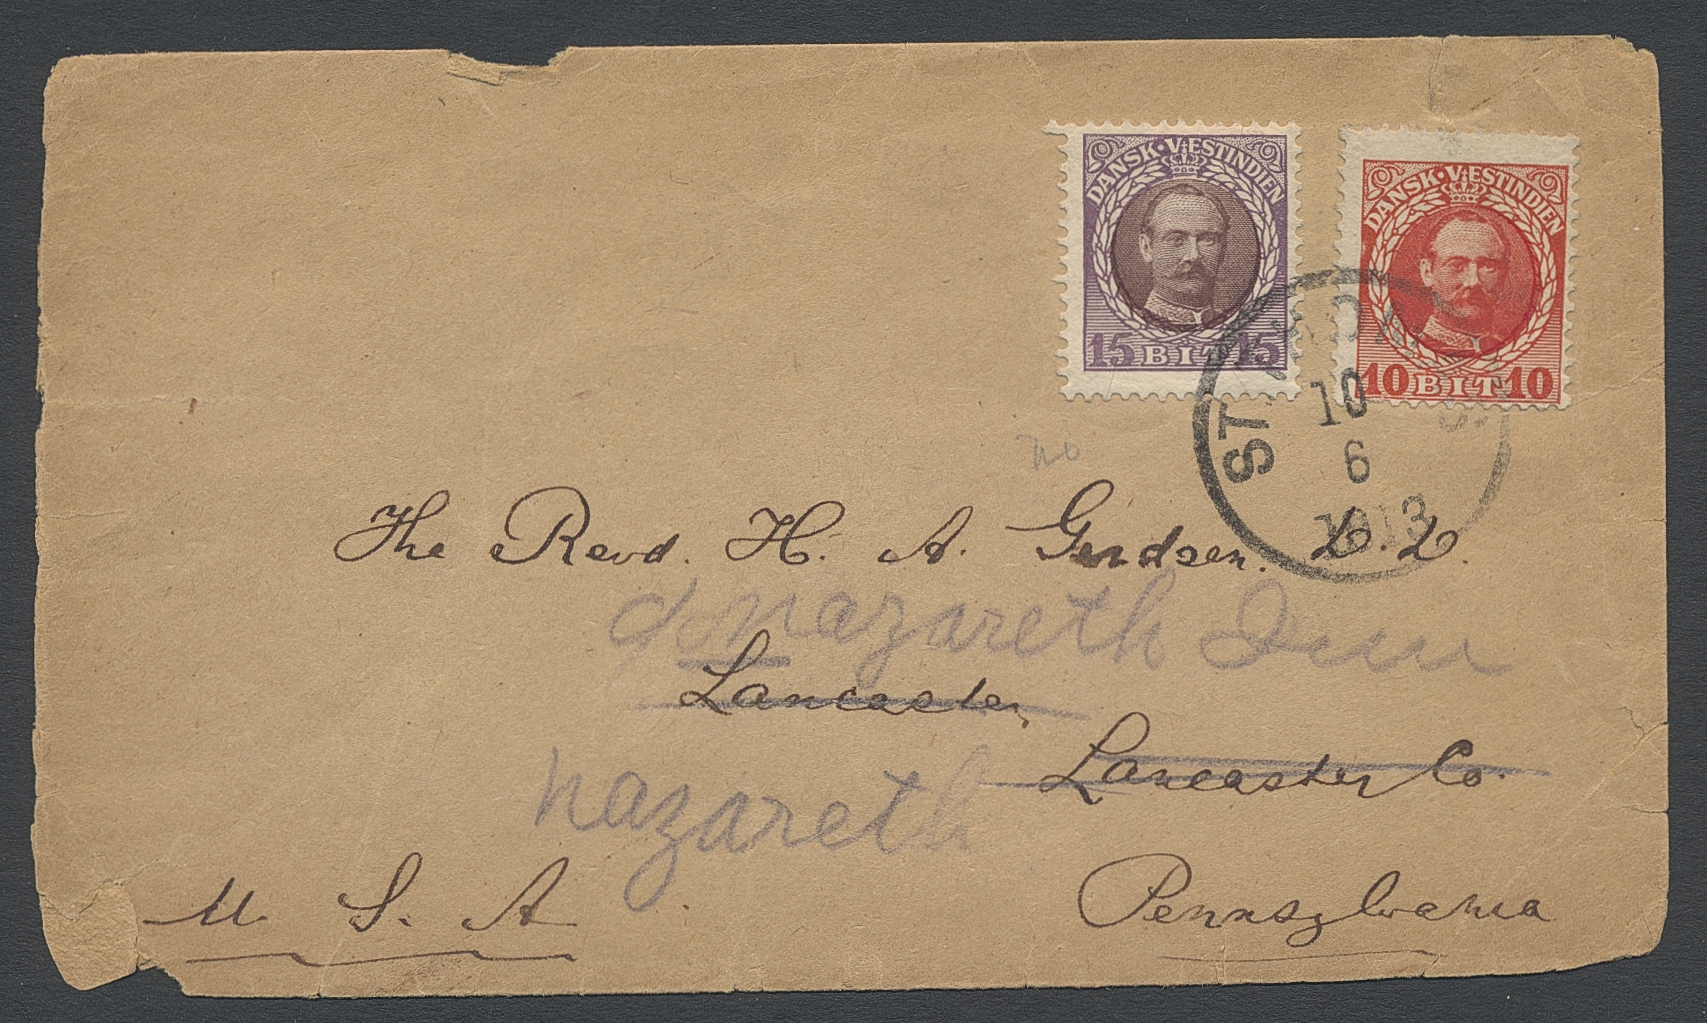 DANSK·VÆSTINDIEN
15 BIT 15
DANSK·VÆSTINDIEN
10 BIT 10
ST.
10
6
1913
no
The Revd. H. A. Gerdsen.
Nazareth
Lancaster,
Lancaster Co.
Nazareth
U. S. A
Pennsylvania